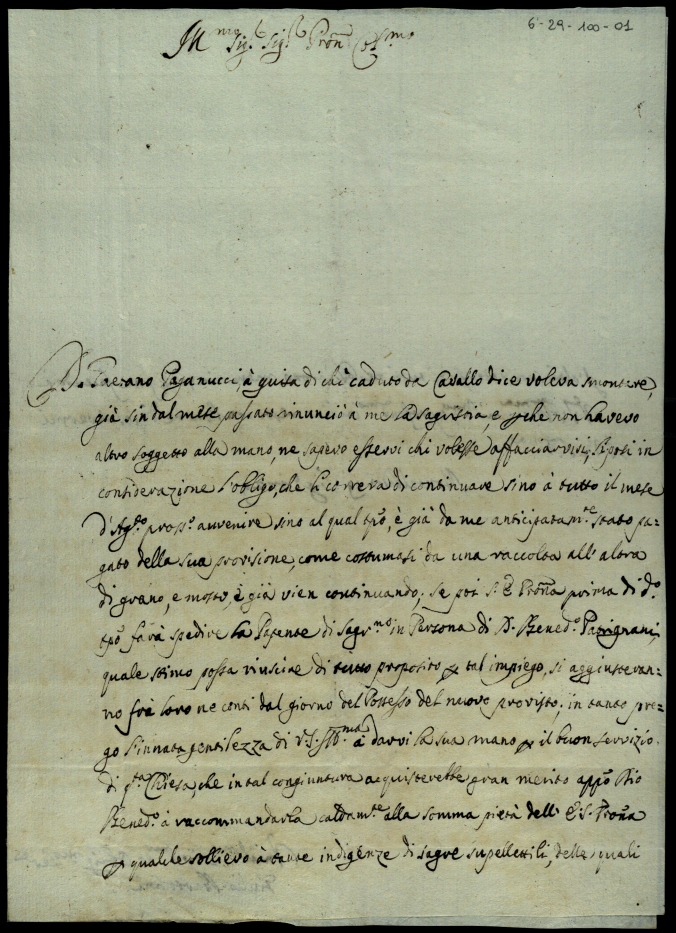 6-29-100-01
Ill.mo Sig.r Sig.r Pron Col.mo
D. Gaetano Paganucci, à guisa di chi caduto da Cavallo dice voleva smontare,
già sin dal mese passato rinunciò à me la Sagristia, e perche non havevo
altro soggetto alla mano, ne sapevo esservi chi volesse affacciarvisi, li posi in
considerazione l'obligo, che li correva di continuare sino à tutto il mese
d'Ag.o pross.o avvenire sino al qual tpo, è già da me anticipatam.te stato pa=
gato della sua provisione, come costumasi da una raccolta all'altra
di grano, e mosto, e già vien continuando; se poi S. E. Prona prima di d.o
tpo farà spedire la Patente di Sagr.no in Persona di D. Bened.o Patrignani,
quale stimo possa riuscire di tutto proposito per tal impiego, si aggiusteran=
no frà loro ne conti dal giorno del Possesso del nuovo provisto; in tanto pre=
go l'innata gentilezza di V.S. Ill.ma à darvi la sua mano per il buon servizio
di q.ta Chiesa, che in tal congiuntura acquisterebbe gran merito appo Dio
Bened.o à raccommandarla caldam.te alla somma pietà dell' E.S. Prona
per qualche sollievo à tante indigenze di sagre supellettili, delle quali